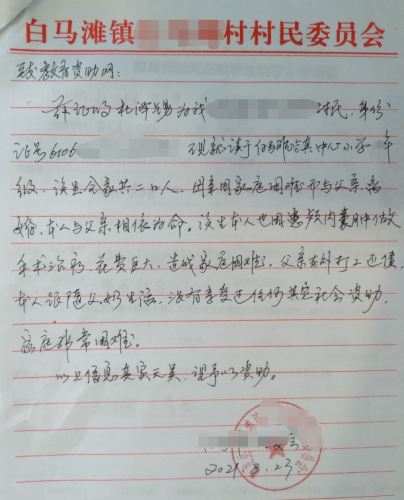 白马滩镇 村村民委员会
教育资助网:
兹证明杜泽 为我 村民,身份
证号6106 现就读于白马滩镇中心小学 年
级,该生全家共二口人,因 家庭困难而与父亲离
婚,本人与父亲相依为命。该生本人也因患颅内囊肿做
手术治疗,花费巨大,造成家庭困难,父亲在外打工还债,
本人跟随父奶生活,没有享受过任何其它社会资助,
家庭非常困难。
以上信息真实无误,望予以资助。
2021.8.23